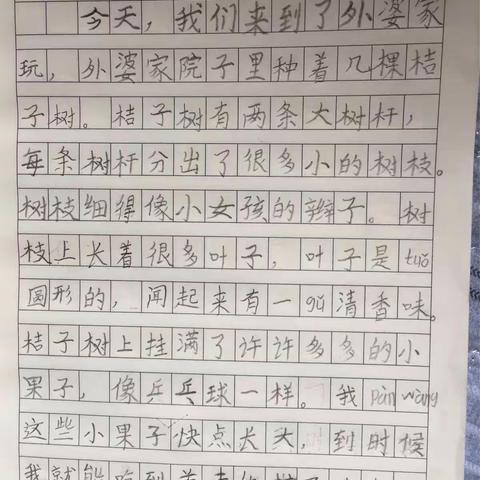 今天，我们来到了外婆家
玩，外婆家院子里种着几棵桔
子树。桔子树有两条大树杆，
每条树杆分出了很多小的树枝。
树枝细得像小女孩的辫子。树
枝上长着很多叶子，叶子是tuǒ
圆形的，闻起来有一gǔ清香味。
桔子树上挂满了许许多多的小
果子，像乒乓球一样。我pàn wàng
这些小果子快点长大，到时候
我就能吃到